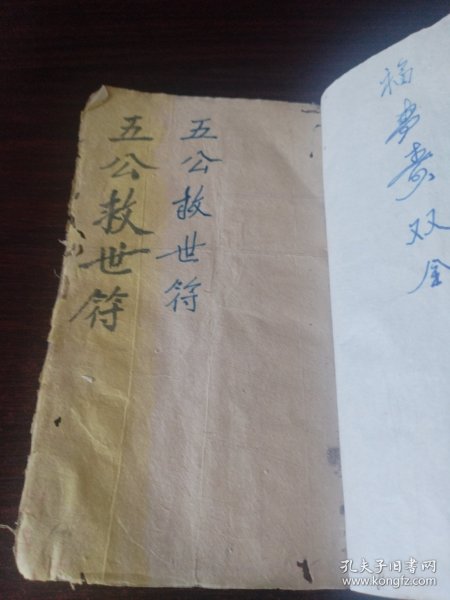 五公救世符
五公救世符
福寿双全
孔夫子旧书网
www.kongfz.com